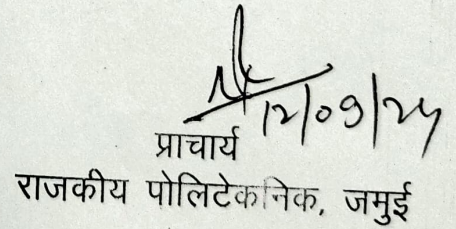 12/09/24
प्राचार्य
राजकीय पोलिटेकनिक, जमुई